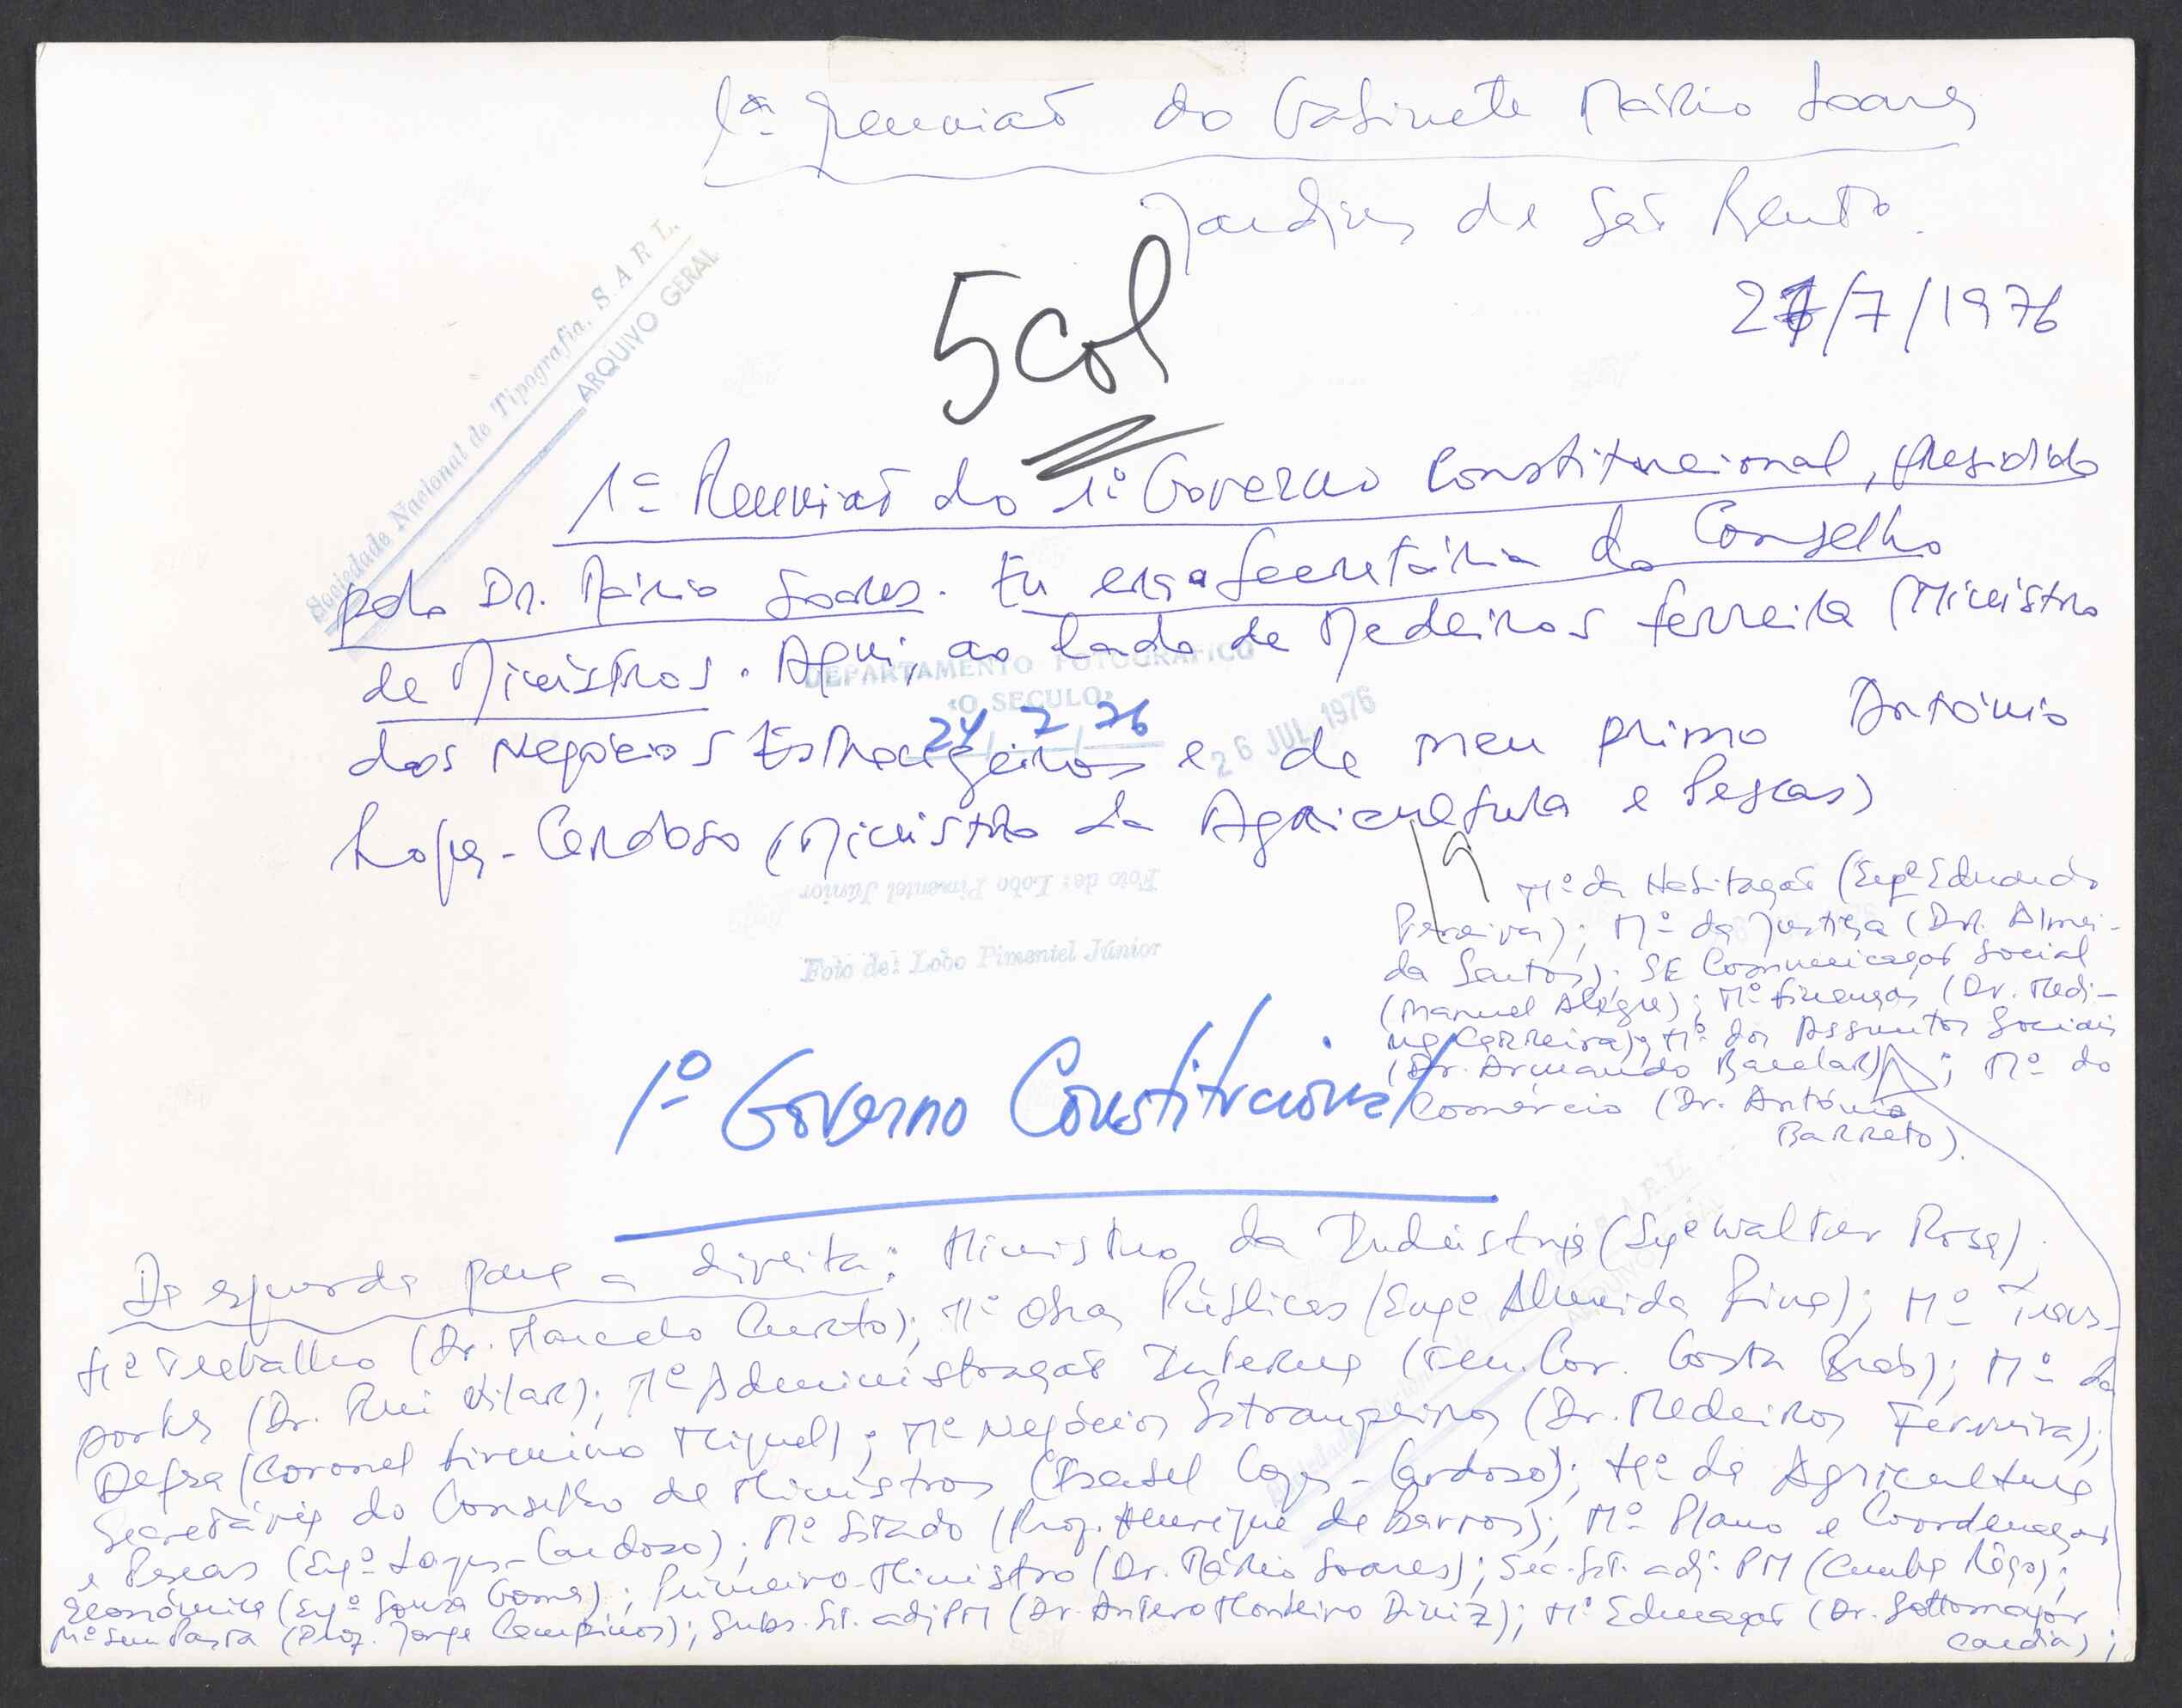 1ª Reunião do Gabinete Mário Soares
Jardins de São Bento.
27/7/1976
Sociedade Nacional de Tipografia, S.A.R.L.
ARQUIVO GERAL
5 Col
1ª Reunião do 1º Governo Constitucional, presidido
pelo Dr. Mário Soares. Eu era a Secretária do Conselho
de Ministros. Aqui, ao lado de Medeiros Ferreira (Ministro
DEPARTAMENTO FOTOGRAFICO
«O SECULO»
24 / 7 / 76
26 JUL. 1976
dos Negócios Estrangeiros e de meu primo António
Lopes-Cardoso (Ministro da Agricultura e Pescas)
Foto de: Lobo Pimentel Júnior
Foto de: Lobo Pimentel Júnior
Mº da Habitação (Engº Eduardo
Pereira); Mº da Justiça (Dr. Almei-
da Santos); SE Comunicação Social
(Manuel Alegre); Mº Finanças (Dr. Medi-
na Carreira); Mº dos Assuntos Sociais
(Dr. Armando Bacelar); Mº do
Comércio (Dr. António
BARReto).
1º Governo Constitucional
Da esquerda para a direita: Ministro da Indústria (Engº Walter Rosa);
Mº Trabalho (Dr. Marcelo Curto); Mº Obras Públicas (Engº Almeida Pina); Mº Trans-
portes (Dr. Rui Vilar); Mº Administração Interna (Ten. Cor. Costa Brás); Mº da
Defesa (Coronel Firmino Miguel); Mº Negócios Estrangeiros (Dr. Medeiros Ferreira);
Secretária do Conselho de Ministros (Isabel Lopes-Cardoso); Mº da Agricultura
e Pescas (Engº Lopes-Cardoso); Mº Estado (Prof. Henrique de Barros); Mº Plano e Coordenação
Económica (Engº Sousa Gomes); Primeiro-Ministro (Dr. Mário Soares); Sec. Est. adj. PM (Cunha Rêgo);
Mº sem Pasta (Prof. Jorge Campinos); Subs. Est. adj PM (Dr. Antero Monteiro Diniz); Mº Educação (Dr. Sottomayor
Cardia);